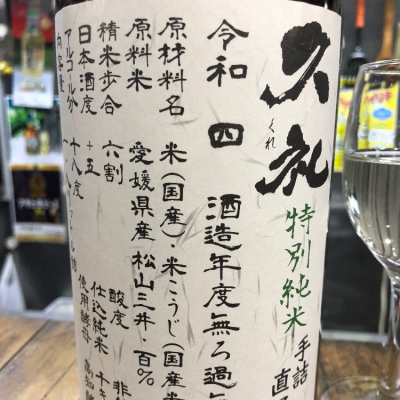 久礼
くれ
特別純米
手詰
直
令和四酒造年度無ろ過無
原材料名 米(国産)・米こうじ(国産米
原料米 愛媛県産 松山三井・百%
精米歩合 六割
酸度
非
日本酒度 +五
仕込純米
アルコール分 十八度
使用酵母 高知
内容量